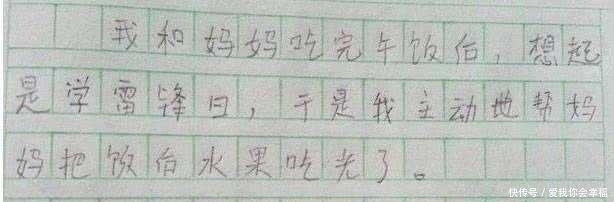 我和妈妈吃完午饭后,想起
是学雷锋日,于是我主动地帮妈
妈把饭后水果吃光了。
快传号/爱我你会幸福